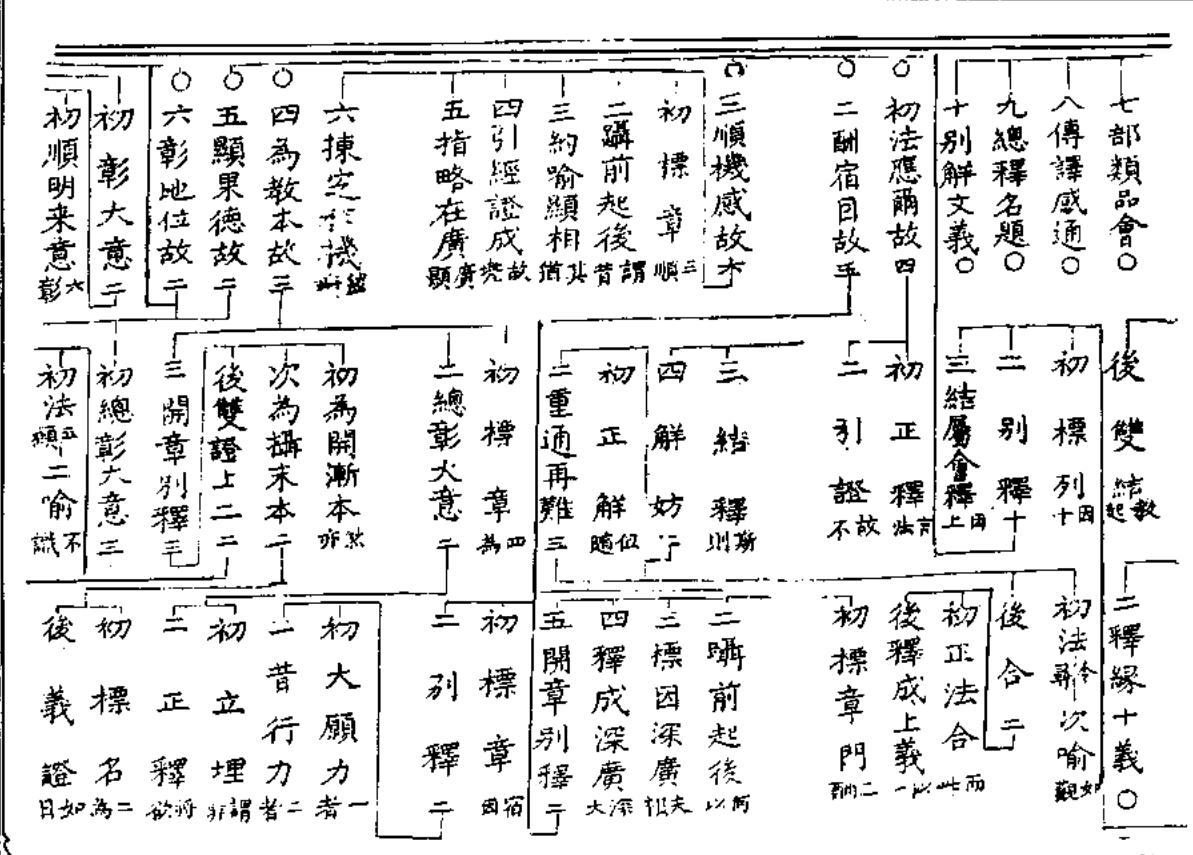 七部類品會〇
八傳譯感通〇
九總釋名題〇
十別解文義〇
〇初法應爾故四
〇二酬宿因故
〇三順機感故
初標章 順三
二躡前起後 昔謂
三約喻顯相 猶其
四引經證成 故
五指略在廣 顯廣
六揀定
〇四為教本故三
〇五顯果德故二
〇六彰地位故二
初彰大意二
初順明来意 彰六
後雙結 起教
初標列 十因
二別釋十
三結屬會釋 上因
初正釋 法言
二引證 不故
三結釋 則斯
四解妨二
初正解 隨位
二重通再難三
初標章 為四
二總彰大意二
初為開漸本
次為攝末本二
後雙證上二二
三開章別釋三
初總彰大意三
初法 顯五 二喻 識不
二釋緣十義〇
初法 次喻 觀如
後合二
初正法合 而此
後釋成上義 一以
初標章門 酬二
二躡前起後 以何
三標因深廣 夫
四釋成深廣 大深
五開章別釋二
初標章 因宿
二別釋二
初大願力 者一
二昔行力 者二
初立理 非謂
二正釋 欲將
初標名 為二
後義證 曰如